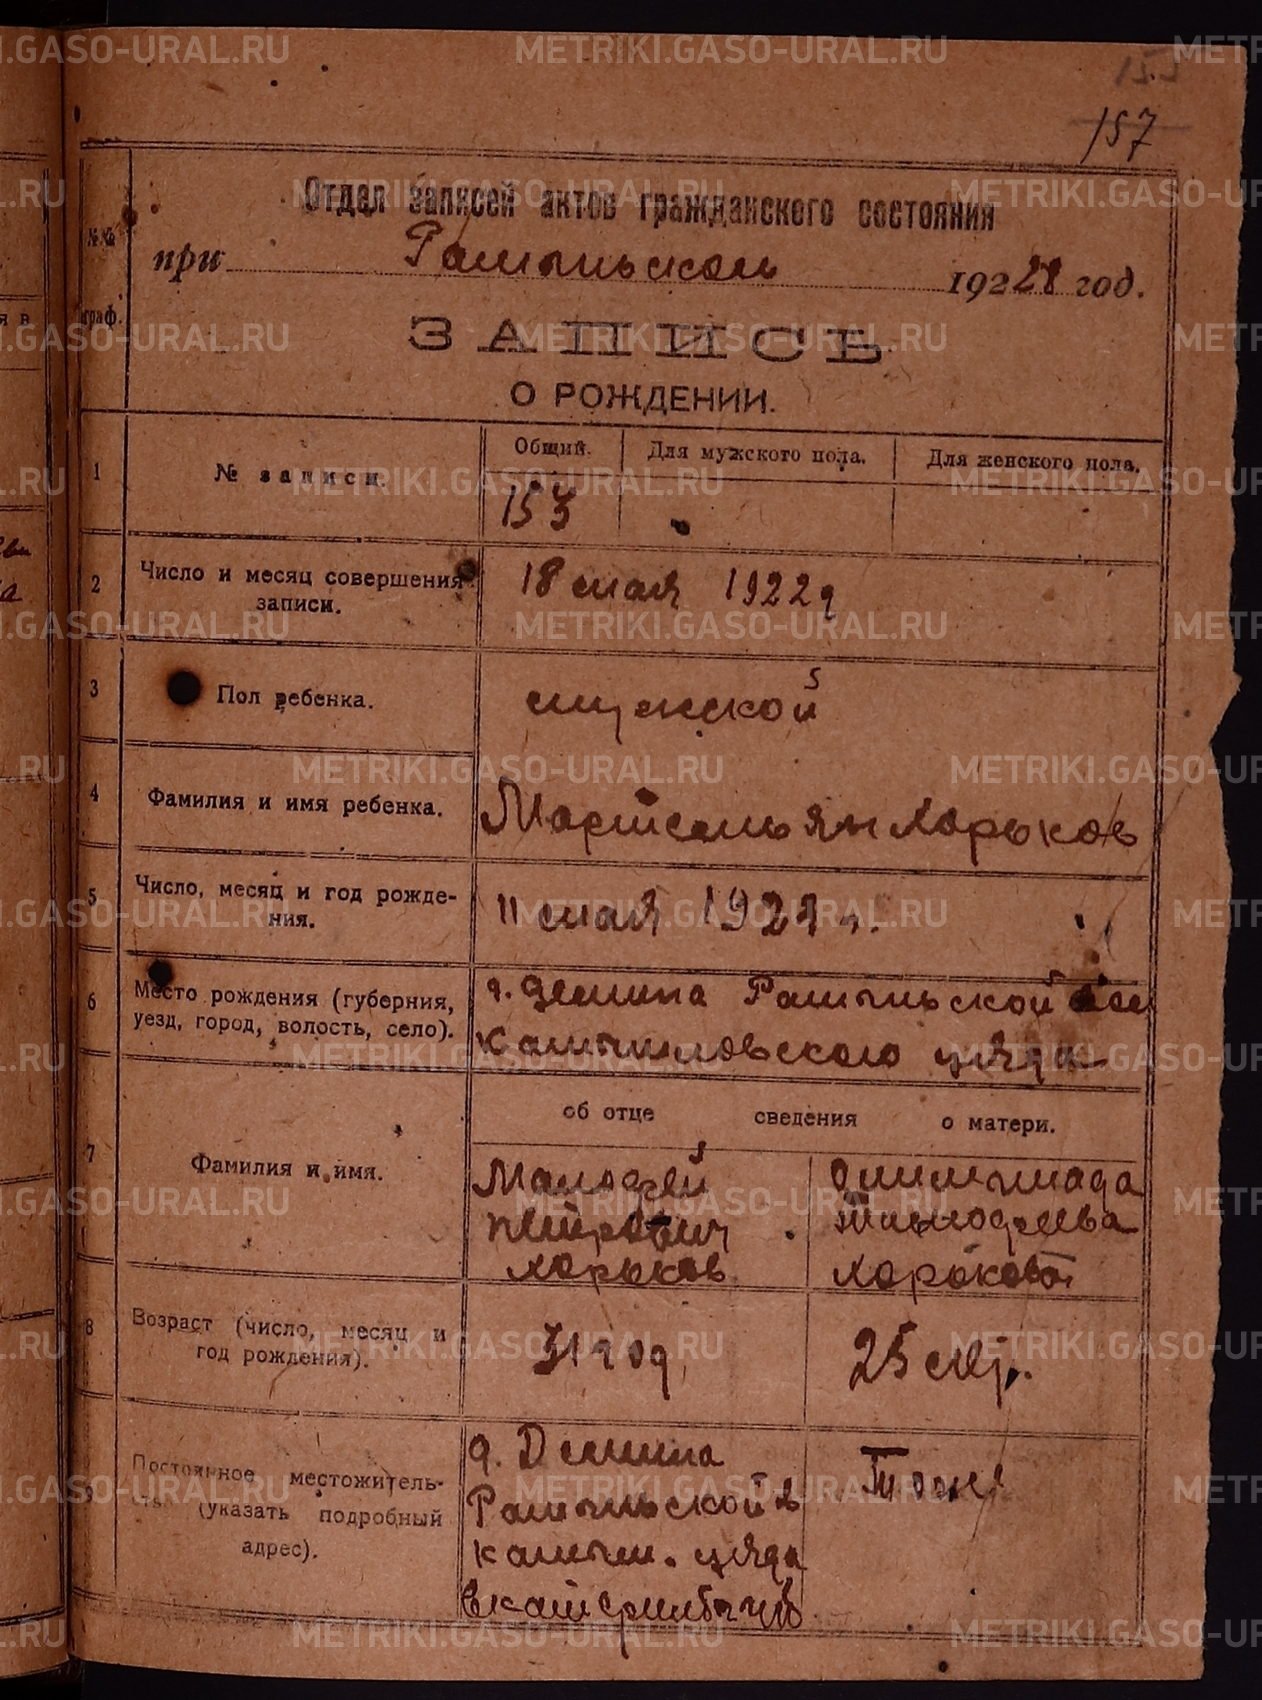 157
Отдел записей актов гражданского состояния
№№ граф.
при Рамыльском 1922 год.
ЗАПИСЬ
О РОЖДЕНИИ.
1 № записи. Общий. Для мужского пола. Для женского пола.
153
2 Число и месяц совершения записи. 18 мая 1922 г
3 Пол ребенка. мужской
4 Фамилия и имя ребенка. Мартемьян Хорьков
5 Число, месяц и год рожде-
ния. 11 мая
6 Место рождения (губерния, д. Демина Рамыльской вол
уезд, город, волость, село). Камышловского уезда
об отце сведения о матери.
7 Фамилия и имя.
Малофей Олимпиада
Петрович Тимофеева
Хорьков Хорькова
8 Возраст (число, месяц и
год рождения). 31 год 25 лет.
9 Постоянное местожитель-
ство (указать подробный
адрес).
д. Демина Тоже
Рамыльской в
камыш. уезда
METRIKI.GASO-URAL.RU